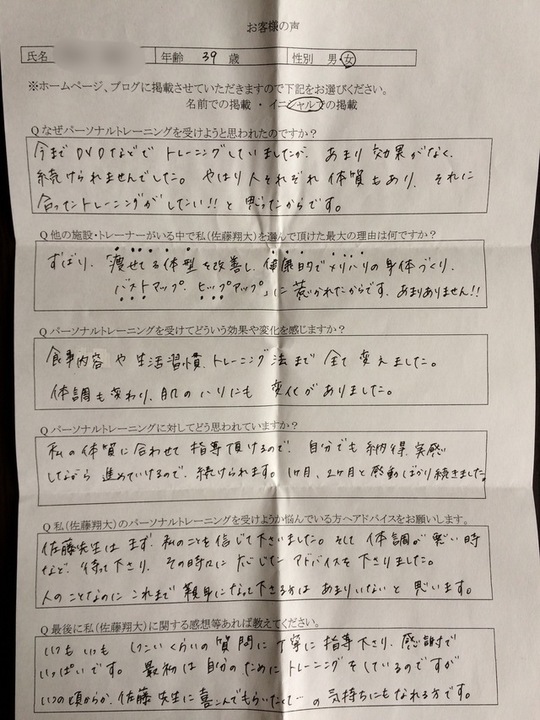 お客様の声
氏名 年齢 39 歳 性別 男・女
※ホームページ、ブログに掲載させていただきますので下記をお選びください。
名前での掲載 ・ イニシャルでの掲載
Q なぜパーソナルトレーニングを受けようと思われたのですか？
今までDVDなどで トレーニングしていましたが、あまり効果がなく、
続けられませんでした。やはり人それぞれ 体質もあり、それに
合ったトレーニングがしたい!! と思ったからです。
Q 他の施設・トレーナーがいる中で私(佐藤翔大)を選んで頂けた最大の理由は何ですか？
ずばり、「痩せてる体型を改善し、健康的でメリハリの身体づくり、
バストアップ、ヒップアップ」に惹かれたからです。あまりありません!!
Q パーソナルトレーニングを受けてどういう効果や変化を感じますか？
食事内容や生活習慣、トレーニング法まで 全て変えました。
体調も変わり、肌のハリにも 変化がありました。
Q パーソナルトレーニングに対してどう思われていますか？
私の体質に合わせて 指導頂けるので、自分でも納得、実感
しながら 進めていけるので、続けられます。1ヶ月、2ヶ月と感動ばかり続きました。
Q 私(佐藤翔大)のパーソナルトレーニングを受けようか悩んでいる方へアドバイスをお願いします。
佐藤先生はまず、私のことを信じて下さいました。そして 体調が悪い時
など、待って下さり、その時々に応じた アドバイスを下さりました。
人のことなのに これまで 親身になって下さる方は あまりいないと思います。
Q 最後に私(佐藤翔大)に関する感想等あれば教えてください。
いつもいつも しつこいくらいの質問に 丁寧に指導下さり、感謝で
いっぱいです。最初は自分のためにトレーニングをしているのですが
いつの頃からか、佐藤先生に喜んでもらいたくて…の気持ちにもなれる方です。